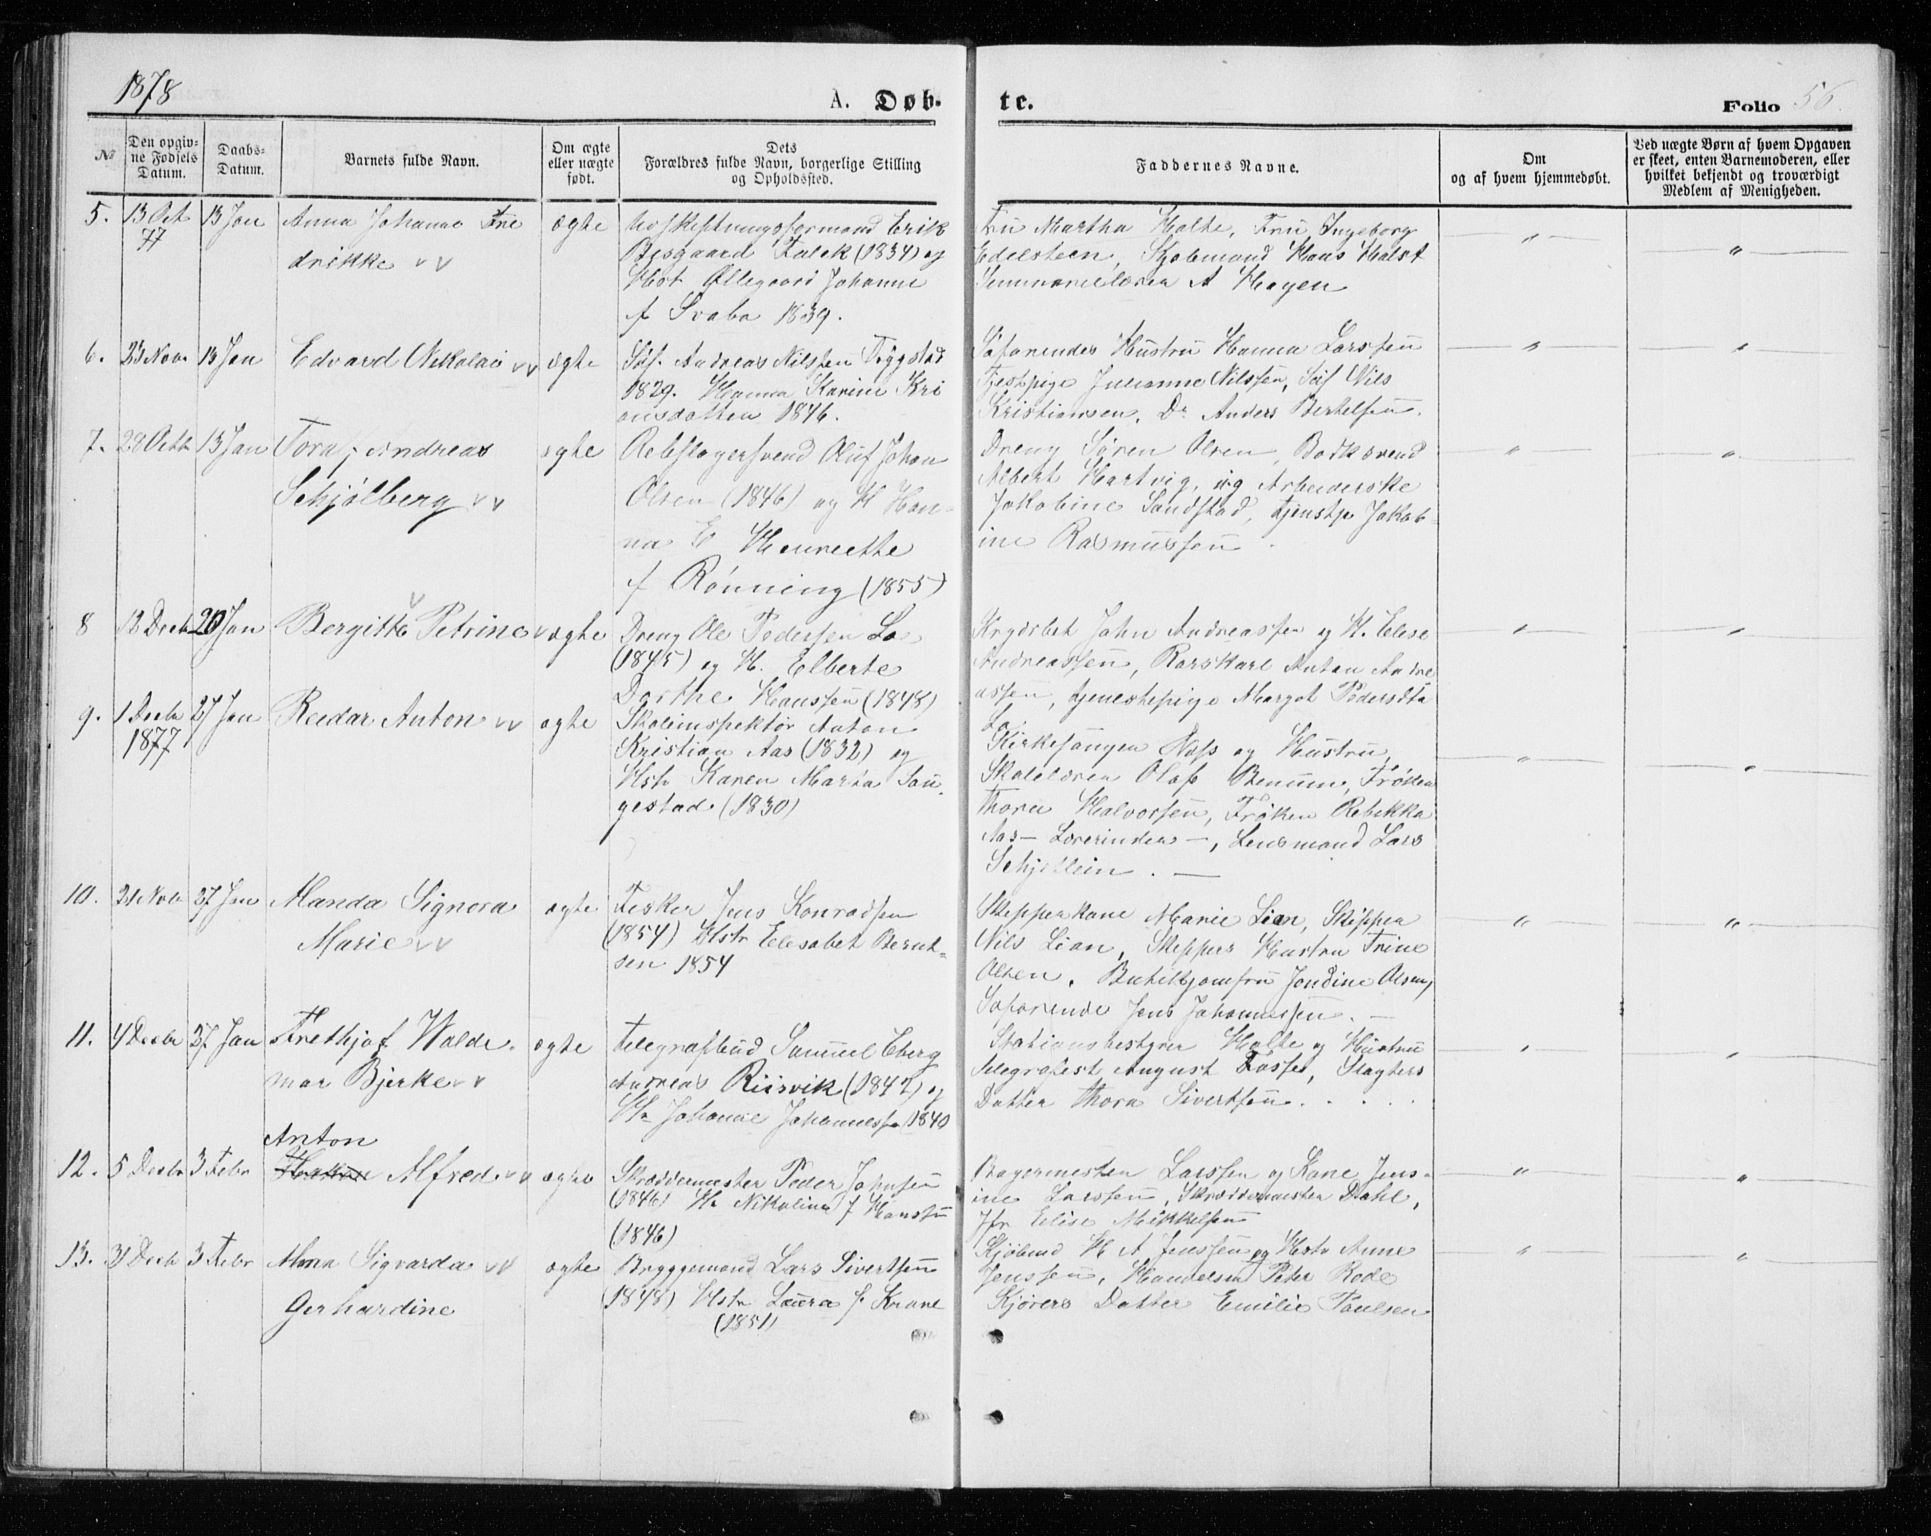 1878
A. Døb-
te.
Folio 56.
№
Den opgiv-
ne Fødsels
Datum.
Daabs-
Datum.
Barnets fulde Navn.
Om ægte
eller uægte
født.
Dets
Forældres fulde Navn, borgerlige Stilling
og Opholdssted.
Faddernes Navne.
Om
og af hvem hjemmedøbt.
Ved uægte Børn af hvem Opgaven
er skeet, enten Barnemoderen, eller
hvilket bekjendt og troværdigt
Medlem af Menigheden.
5. 13 Oct 13 Jan Anna Johanne Fre ægte Erik
77 drikke Falck (1834) og
Johanne
f Svabo 1839.
Fru Martha Holte, Fru Ingeborg
Edelsteen, Hans Holst
A Hagen
6. 23 Novr 13 Jan Edvard Nikolai ægte Søf. Andreas Nilssen Tiggstad
1829. Hanna Karine Kri
ansdatten 1846.
Søfarendes Hustru Hanna Larssen
Julianne Nilssen, Søf Nils
Kristiansen, Do Anders Bertelsen.
7. 28 Octb 13 Jan Tora, Andreas ægte Rebslagersvend Oluf Johan
Schjølberg Olsen (1846) og H Han-
na E Henriette
f Rønning (1855)
Dreng Søren Olsen, Bødksvend
Albert Hartvig, ug Arbeiderske
Jakobine Sandstad, tjenstp Jakob-
ine Rasmussen.
8 13 Decb 20 Jan Bergitte Petrine ægte Dreng Ole Pedersen Lo
(1845) og H. Elberte
Dorthe Hanssen (1848)
John Andreassen og H. Elise
Andreassen, Rorskarl Anton Andre
assen, tjenestepige Margot Pedersdtr
Lo
9. 1 Decbr 27 Jan Reidar Anton ægte Skoleinspektør Anton
1877 Kristian Aas (1832) og
Hstr Karen Marta Sau-
gestad. (1830)
Kirkesanger Næss og Hustru,
Skolelærer Olaf Benum, Frøken
Thora Halvorsen, Frøken Rebekka
Aas - Lærerinder -, Lensmand Lars
Schjetlein. -
10. 21 Novb 27 Jan Manda Signora ægte Fisker Jens Konradsen
Marie (1854) Hstr Elisabet Bernt-
sen 1854
Skipperkone Marie Lian, Skipper
Nils Lian, Skippers Hustru Trine
Olsen, Butikjomfru Jondine Olsen,
Søfarende Jens Johannessen. -
11. 4 Decbr 27 Jan Frethjof Walde- ægte Telegrafbud Samuel Eberg
mar Bjerke Andreas Riisvik (1847) og
Hr Johanne Johannessen (1840
Stationsbestyrer Holte og Hustru
Telegrafist August Fosse, Slagters
Datter Thora Sivertsen. . . . .
Anton
12. 5 Decbr 3 Febr Alfred ægte Skræddermester Peder Johnsen
(1846) Hr Nikoline f Hanssen
(1846)
Bagermester Larssen og Kone Jens-
ine Larssen, Skræddermester Dahl,
Jfr Elise Mikkelsen
13. 31 Decb 3 Febr Alma Sigvarda ægte Bryggemand Lars Sivertsen
Gerhardine (1848) Hstr Laura f. Krane
(1851)
Kjøbmd H A Jenssen og Hstr Anne
Jenssen, Handelsm Peter Rode
Kjørers Datter Emilie Paulsen